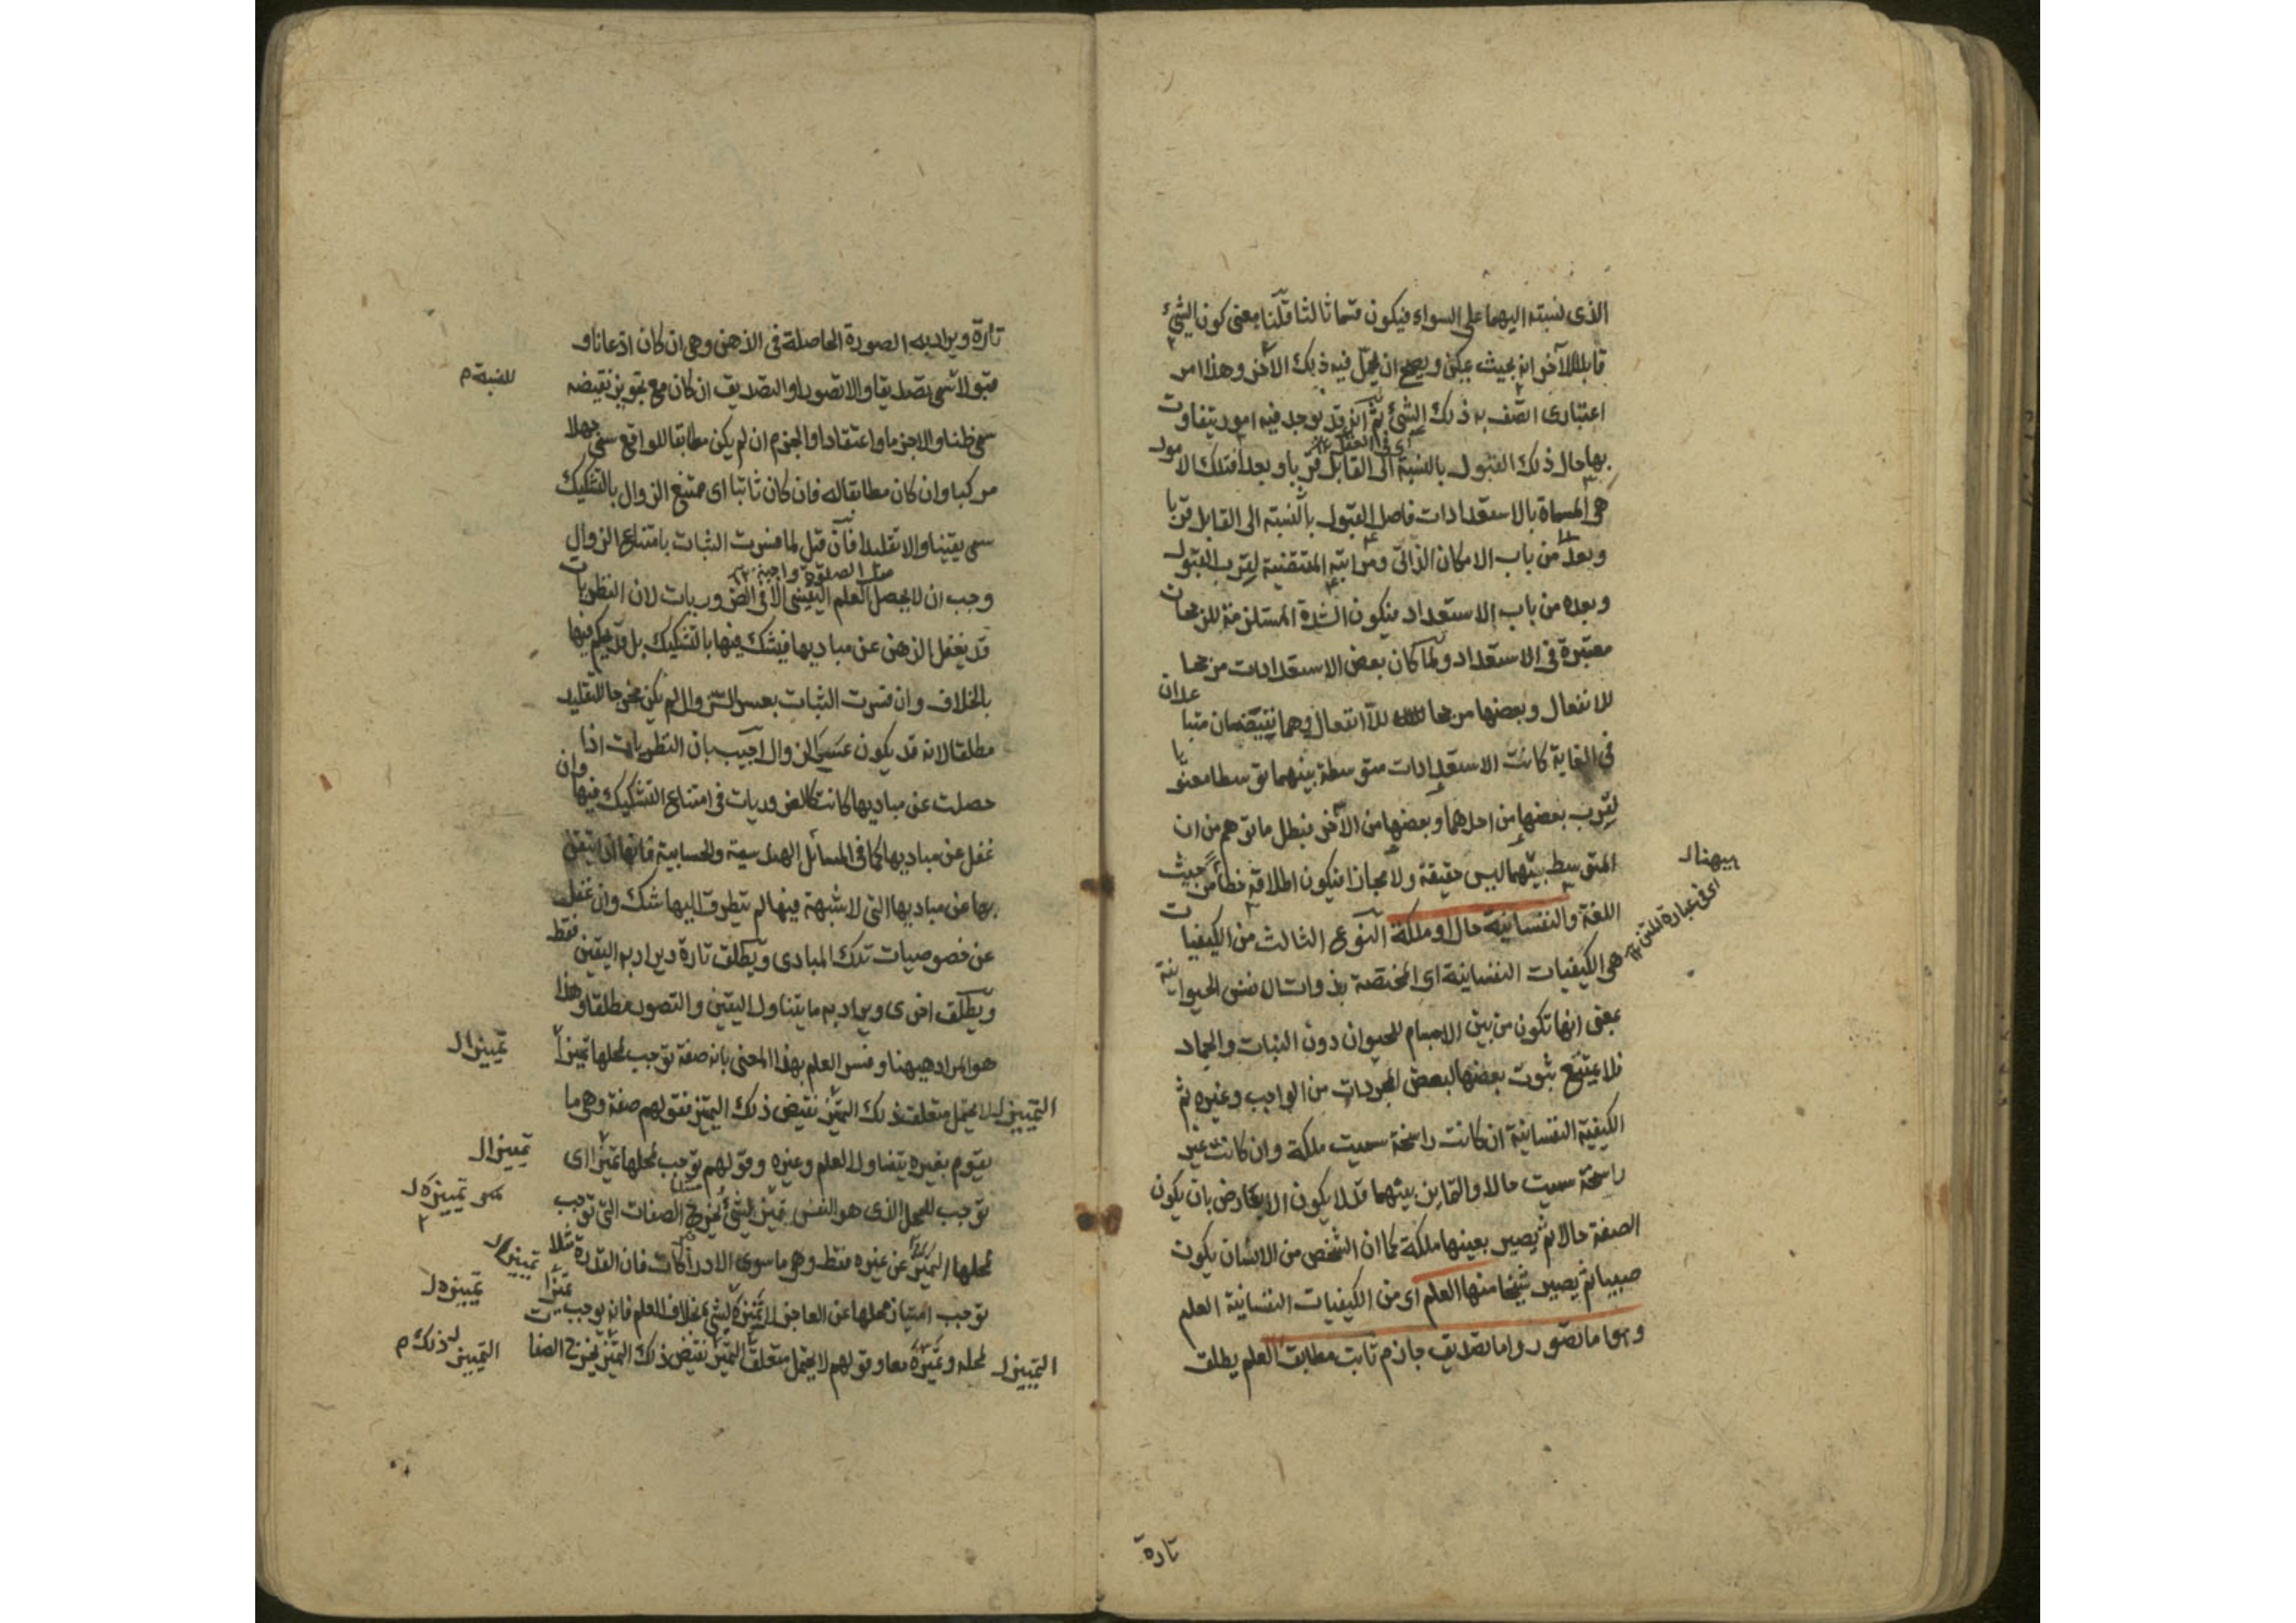 الذى نسبته اليهما على السواء فيكون قسما ثالثا قلنا معنى كون الشئ
قابلا للآخر انه بحيث يمكن ويصح ان يحل فيه ذلك الآخر وهذا امر
اعتبارى اتصف به ذلك الشئ ثم انه قد يوجد فيه امور يتفاوت
بها حال ذلك القبول بالنسبة الى القابل قربا وبعدا فتلك الامور
هى المسماة بالاستعدادات فاصل القبول بالنسبة الى القابل قربا
وبعدا من باب الامكان الذاتى ومراتبه المقتضية لقرب القبول
وبعده من باب الاستعداد فيكون الشدة المستلزمة للرجحان
معتبرة فى الاستعداد ولما كان بعض الاستعدادات مرجحا
للانفعال وبعضها مرجحا للاانفعال وهما نقيضان متباعدان
فى الغاية كانت الاستعدادات متوسطة بينهما توسطا معنويا
لقرب بعضها من احدهما وبعضها من الآخر فبطل ما توهم من ان
المتوسط بينهما ليس حقيقة ولا مجازا فيكون اطلاقه خطأ من حيث
اللغة والنفسانية حال او ملكة النوع الثالث من الكيفيات
هى الكيفيات النفسانية اى المختصة بذوات الانفس الحيوانية
بمعنى انها تكون من بين الاجسام للحيوان دون النبات والجماد
فلا يمتنع ثبوت بعضها لبعض المجردات من الواجب وغيره ثم
الكيفية النفسانية ان كانت راسخة سميت ملكة وان كانت غير
راسخة سميت حالا والتمايز بينهما قد لا يكون الا بعارض بان يكون
الصفة حالا ثم يصير بعينها ملكة كما ان الشخص من الانسان يكون
صبيا ثم يصير شيخا منها العلم اى من الكيفيات النفسانية العلم
وهو اما تصور واما تصديق جازم ثابت مطابق العلم يطلق
اى فى عبارة المتن
تارة
تارة ويراد به الصورة الحاصلة فى الذهن وهى ان كان اذعانا و
قبولا تسمى تصديقا والا تصورا والتصديق ان كان مع تجويز نقيضه
للنسبة م
سمى ظنا والا جزما واعتقادا والجزم ان لم يكن مطابقا للواقع سمى جهلا
مركبا وان كان مطابقا له فان كان ثابتا اى ممتنع الزوال بالتشكيك
سمى يقينا والا تقليدا فان قيل لما فسرت الثبات بامتناع الزوال
وجب ان لا يحصل العلم اليقينى الا فى الضروريات لان النظريات
قد يغفل الذهن عن مباديها فيشك فيها بالتشكيك بل قد يحكم فيها
بالخلاف وان فسرت الثبات بعسر الزوال لم يكن مخرجا للتقليد
مطلقا لانه قد يكون عسر الزوال اجيب بان النظريات اذا
حصلت عن مباديها كانت كالضروريات فى امتناع التشكيك فيها وان
غفل عن مباديها كما فى المسائل الهندسية والحسابية فانها اذا تيقن
بها عن مباديها التى لا شبهة فيها لم يتطرق اليها شك وان غفل
عن خصوصيات تلك المبادى ويطلق تارة ويراد به اليقين فقط
ويطلق اخرى ويراد به ما يتناول اليقين والتصور مطلقا وهذا
هو المراد هيهنا وفسر العلم بهذا المعنى بانه صفة توجب لمحلها تميزا
تمييزا ل
لا يحتمل متعلق ذلك التميز نقيض ذلك التميز فقولهم صفة وهى ما
التمييز ل
يقوم بغيره يتناول العلم وغيره وقولهم توجب لمحلها تميزا اى
تمييزا ل
توجب للمحل الذى هو النفس تميز الشئ يخرج الصفات التى توجب
لمحلها التميز عن غيره فقط وهو ما سوى الادراكات فان القدرة مثلا
توجب امتياز محلها عن العاجز لا تميزه لشئ بخلاف العلم فانه يوجب تميزا
تمييزه ل
لمحله وتميزه معا وقولهم لا يحتمل متعلق التميز نقيض ذلك التميز يخرج الصفات
التمييز ل
التمييز ل ذلك م